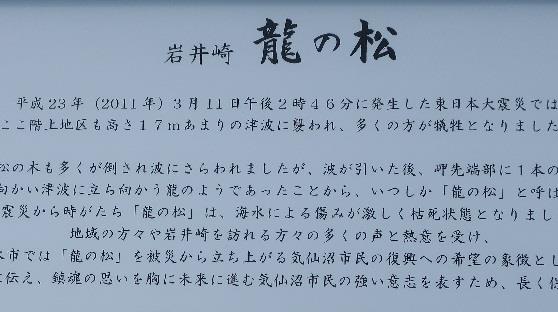 岩井崎 龍の松
平成23年（2011年）3月11日午後2時46分に発生した東日本大震災では
ここ階上地区も高さ17mあまりの津波に襲われ、多くの方が犠牲となりました
松の木も多くが倒され波にさらわれましたが、波が引いた後、岬先端部に1本の
向かい津波に立ち向かう龍のようであったことから、いつしか「龍の松」と呼ば
震災から時がたち「龍の松」は、海水による傷みが激しく枯死状態となりまし
地域の方々や岩井崎を訪れる方々の多くの声と熱意を受け、
市では「龍の松」を被災から立ち上がる気仙沼市民の復興への希望の象徴とし
伝え、鎮魂の思いを胸に未来に進む気仙沼市民の強い意志を表すため、長く保